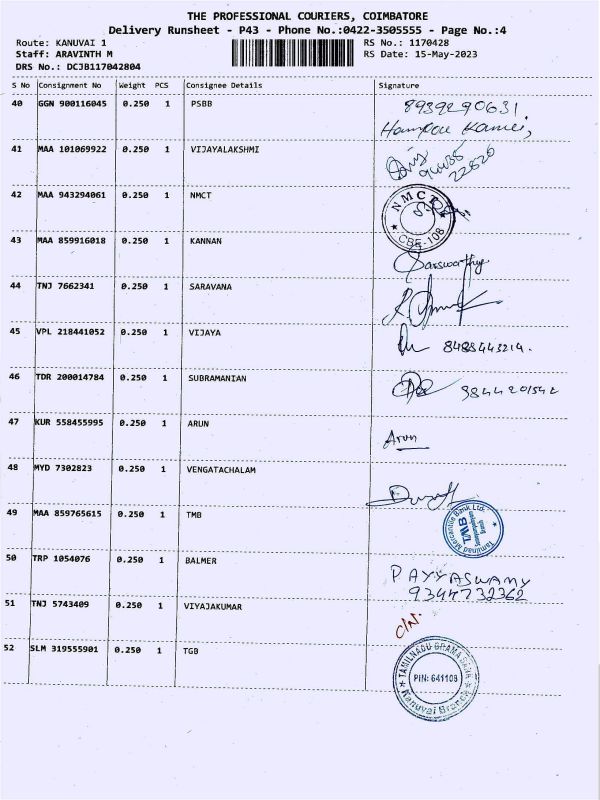 THE PROFESSIONAL COURIERS, COIMBATORE
Delivery Runsheet - P43 - Phone No.:0422-3505555 - Page No.:4
Route: KANUVAI 1 RS No.: 1170428
Staff: ARAVINTH M RS Date: 15-May-2023
DRS No.: DCJB117042804
S No Consignment No Weight PCS Consignee Details Signature
40 GGN 900116045 0.250 1 PSBB 8939290631
41 MAA 101069922 0.250 1 VIJAYALAKSHMI
42 MAA 943294061 0.250 1 NMCT NMCT CBE-108
43 MAA 859916018 0.250 1 KANNAN
44 TNJ 7662341 0.250 1 SARAVANA
45 VPL 218441052 0.250 1 VIJAYA 8488443214.
46 TDR 200014784 0.250 1 SUBRAMANIAN 9844201542
47 KUR 558455995 0.250 1 ARUN Arun
48 MYD 7302823 0.250 1 VENGATACHALAM
49 MAA 859765615 0.250 1 TMB Tamilnad Mercantile Bank Ltd. TMB
50 TRP 1054076 0.250 1 BALMER PAYYASWAMY
9344732362
51 TNJ 5743409 0.250 1 VIYAJAKUMAR C/N.
52 SLM 319555901 0.250 1 TGB TAMILNADU GRAMA BANK PIN: 641108 Kanuvai Branch